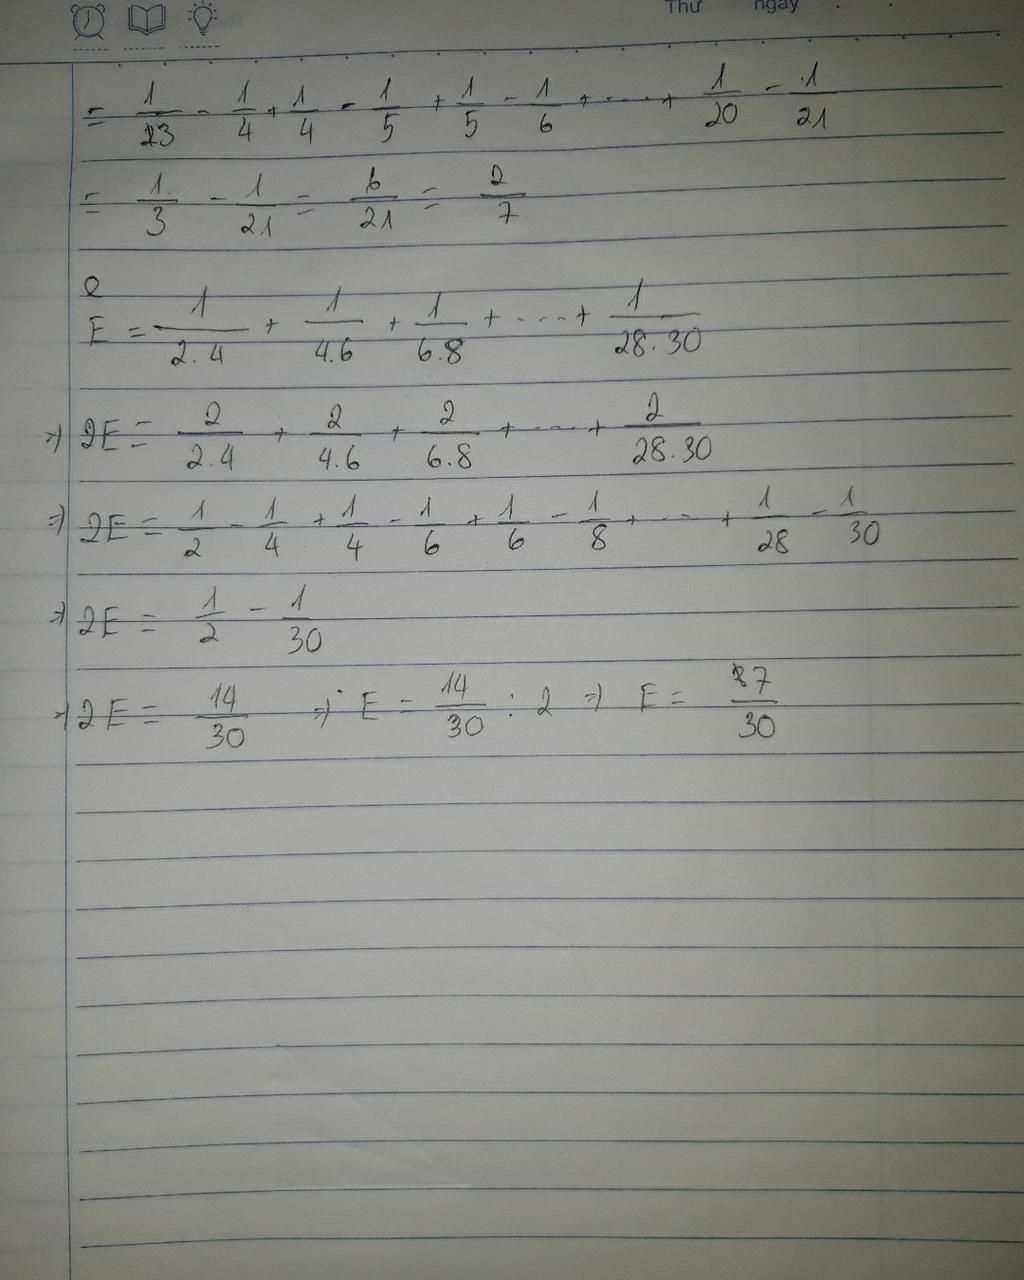 Thứ ngày
= 1/23 - 1/4 + 1/4 - 1/5 + 1/5 - 1/6 + ... + 1/20 - 1/21
= 1/3 - 1/21 = 6/21 = 2/7
e
E = 1/2.4 + 1/4.6 + 1/6.8 + ... + 1/28.30
=> 2E = 2/2.4 + 2/4.6 + 2/6.8 + ... + 2/28.30
=> 2E = 1/2 - 1/4 + 1/4 - 1/6 + 1/6 - 1/8 + ... + 1/28 - 1/30
=> 2E = 1/2 - 1/30
=> 2E = 14/30 => E = 14/30 : 2 => E = 87/30